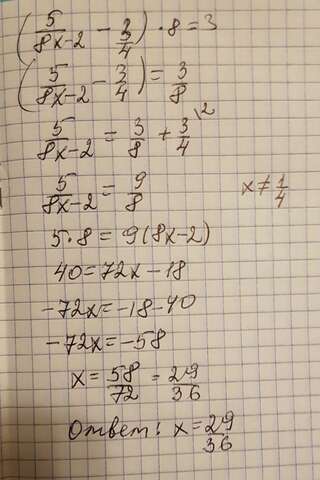 (5/(8x-2) - 3/4) · 8 = 3
(5/(8x-2) - 3/4) = 3/8
5/(8x-2) = 3/8 + 3/4 \2
5/(8x-2) = 9/8 x ≠ 1/4
5·8 = 9(8x-2)
40 = 72x - 18
-72x = -18 - 40
-72x = -58
x = 58/72 = 29/36
Ответ: x = 29/36